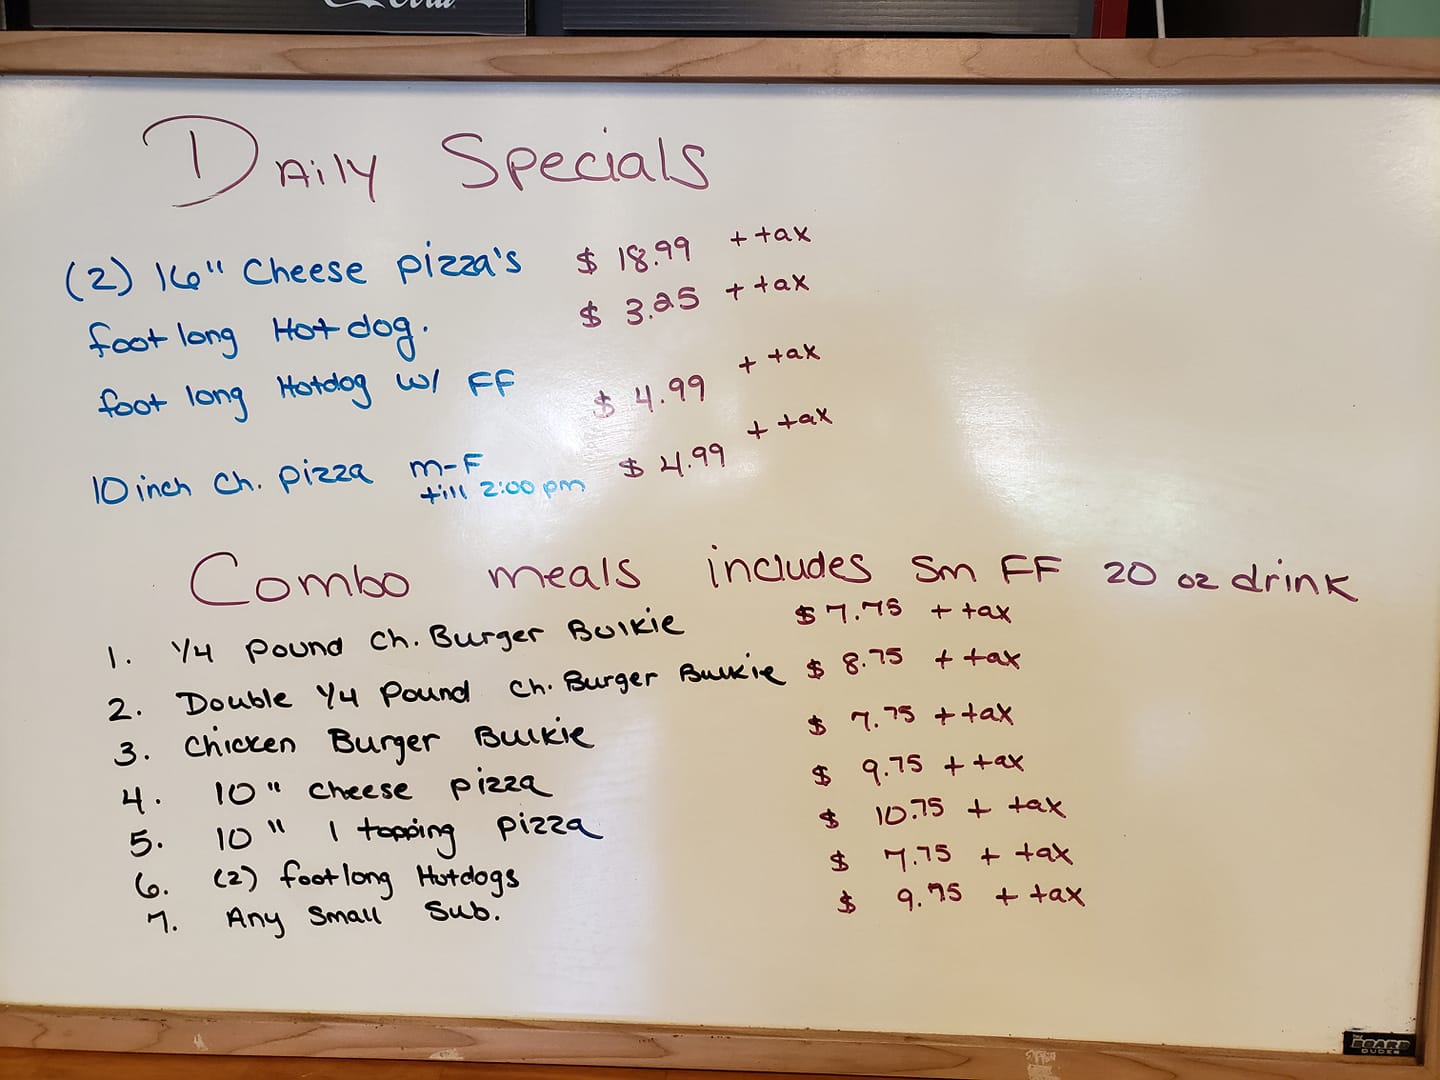 Cola
Daily Specials
(2) 16" Cheese pizza's $ 18.99 + tax
foot long Hot dog. $ 3.25 + tax
foot long Hotdog w/ FF $ 4.99 + tax
10 inch Ch. pizza m-F till 2:00 pm $ 4.99 + tax
Combo meals includes Sm FF 20 oz drink
1. 1/4 pound Ch. Burger Bulkie $ 7.75 + tax
2. Double 1/4 Pound Ch. Burger Bulkie $ 8.75 + tax
3. Chicken Burger Bulkie $ 7.75 + tax
4. 10" cheese pizza $ 9.75 + tax
5. 10" 1 topping pizza $ 10.75 + tax
6. (2) foot long Hotdogs $ 7.75 + tax
7. Any Small Sub. $ 9.75 + tax
THE BOARD DUDES